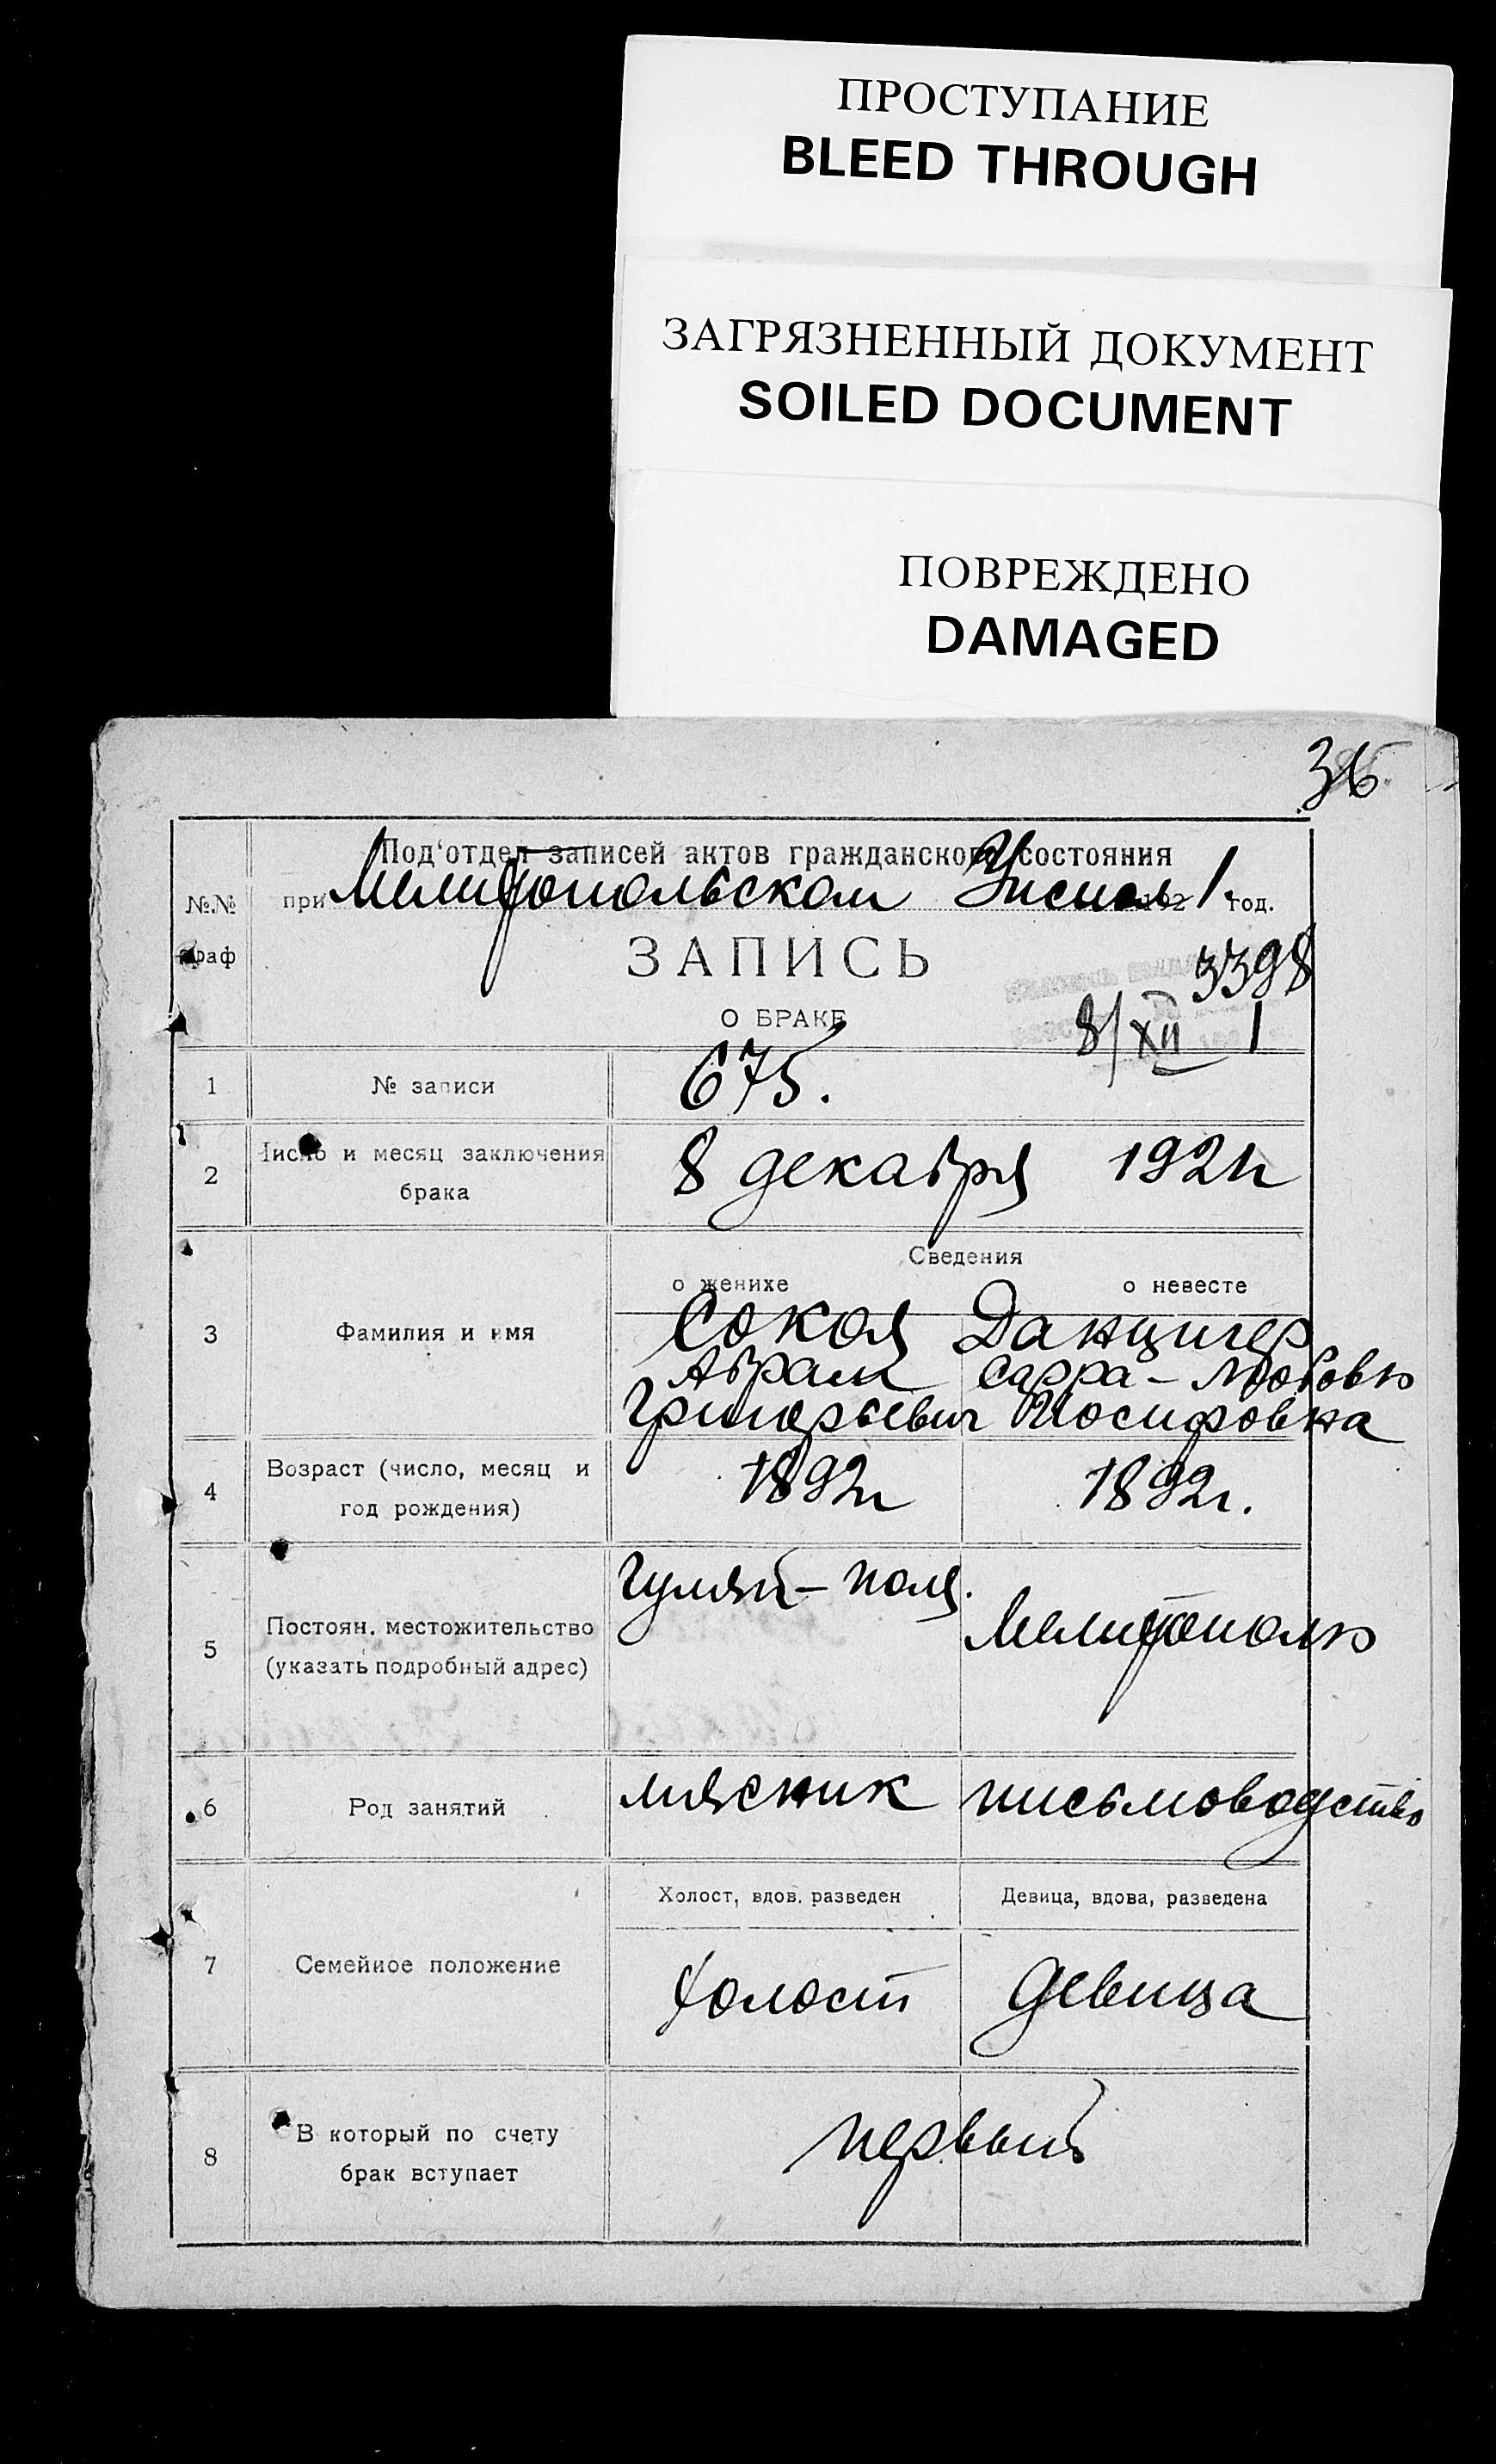 ПРОСТУПАНИЕ
BLEED THROUGH
ЗАГРЯЗНЕННЫЙ ДОКУМЕНТ
SOILED DOCUMENT
ПОВРЕЖДЕНО
DAMAGED
36
Под'отдел записей актов гражданского состояния
№№ при Мелитопольском 192 1 год.
граф
ЗАПИСЬ
3398
О БРАКЕ
8/XII 1
1 № записи 675.
2 Число и месяц заключения брака 8 декабря 1921г
Сведения
о женихе о невесте
3 Фамилия и имя Сокол Данцигер
Абрам Сарра-Любовь
Григорьевич Иосифовна
4 Возраст (число, месяц и год рождения) 1892г 1892г.
Гуляй-поле.
5 Постоян. местожительство Мелитополь
(указать подробный адрес)
6 Род занятий мясник письмоводство
Холост, вдов. разведен Девица, вдова, разведена
7 Семейное положение холост девица
8 В который по счету первый
брак вступает